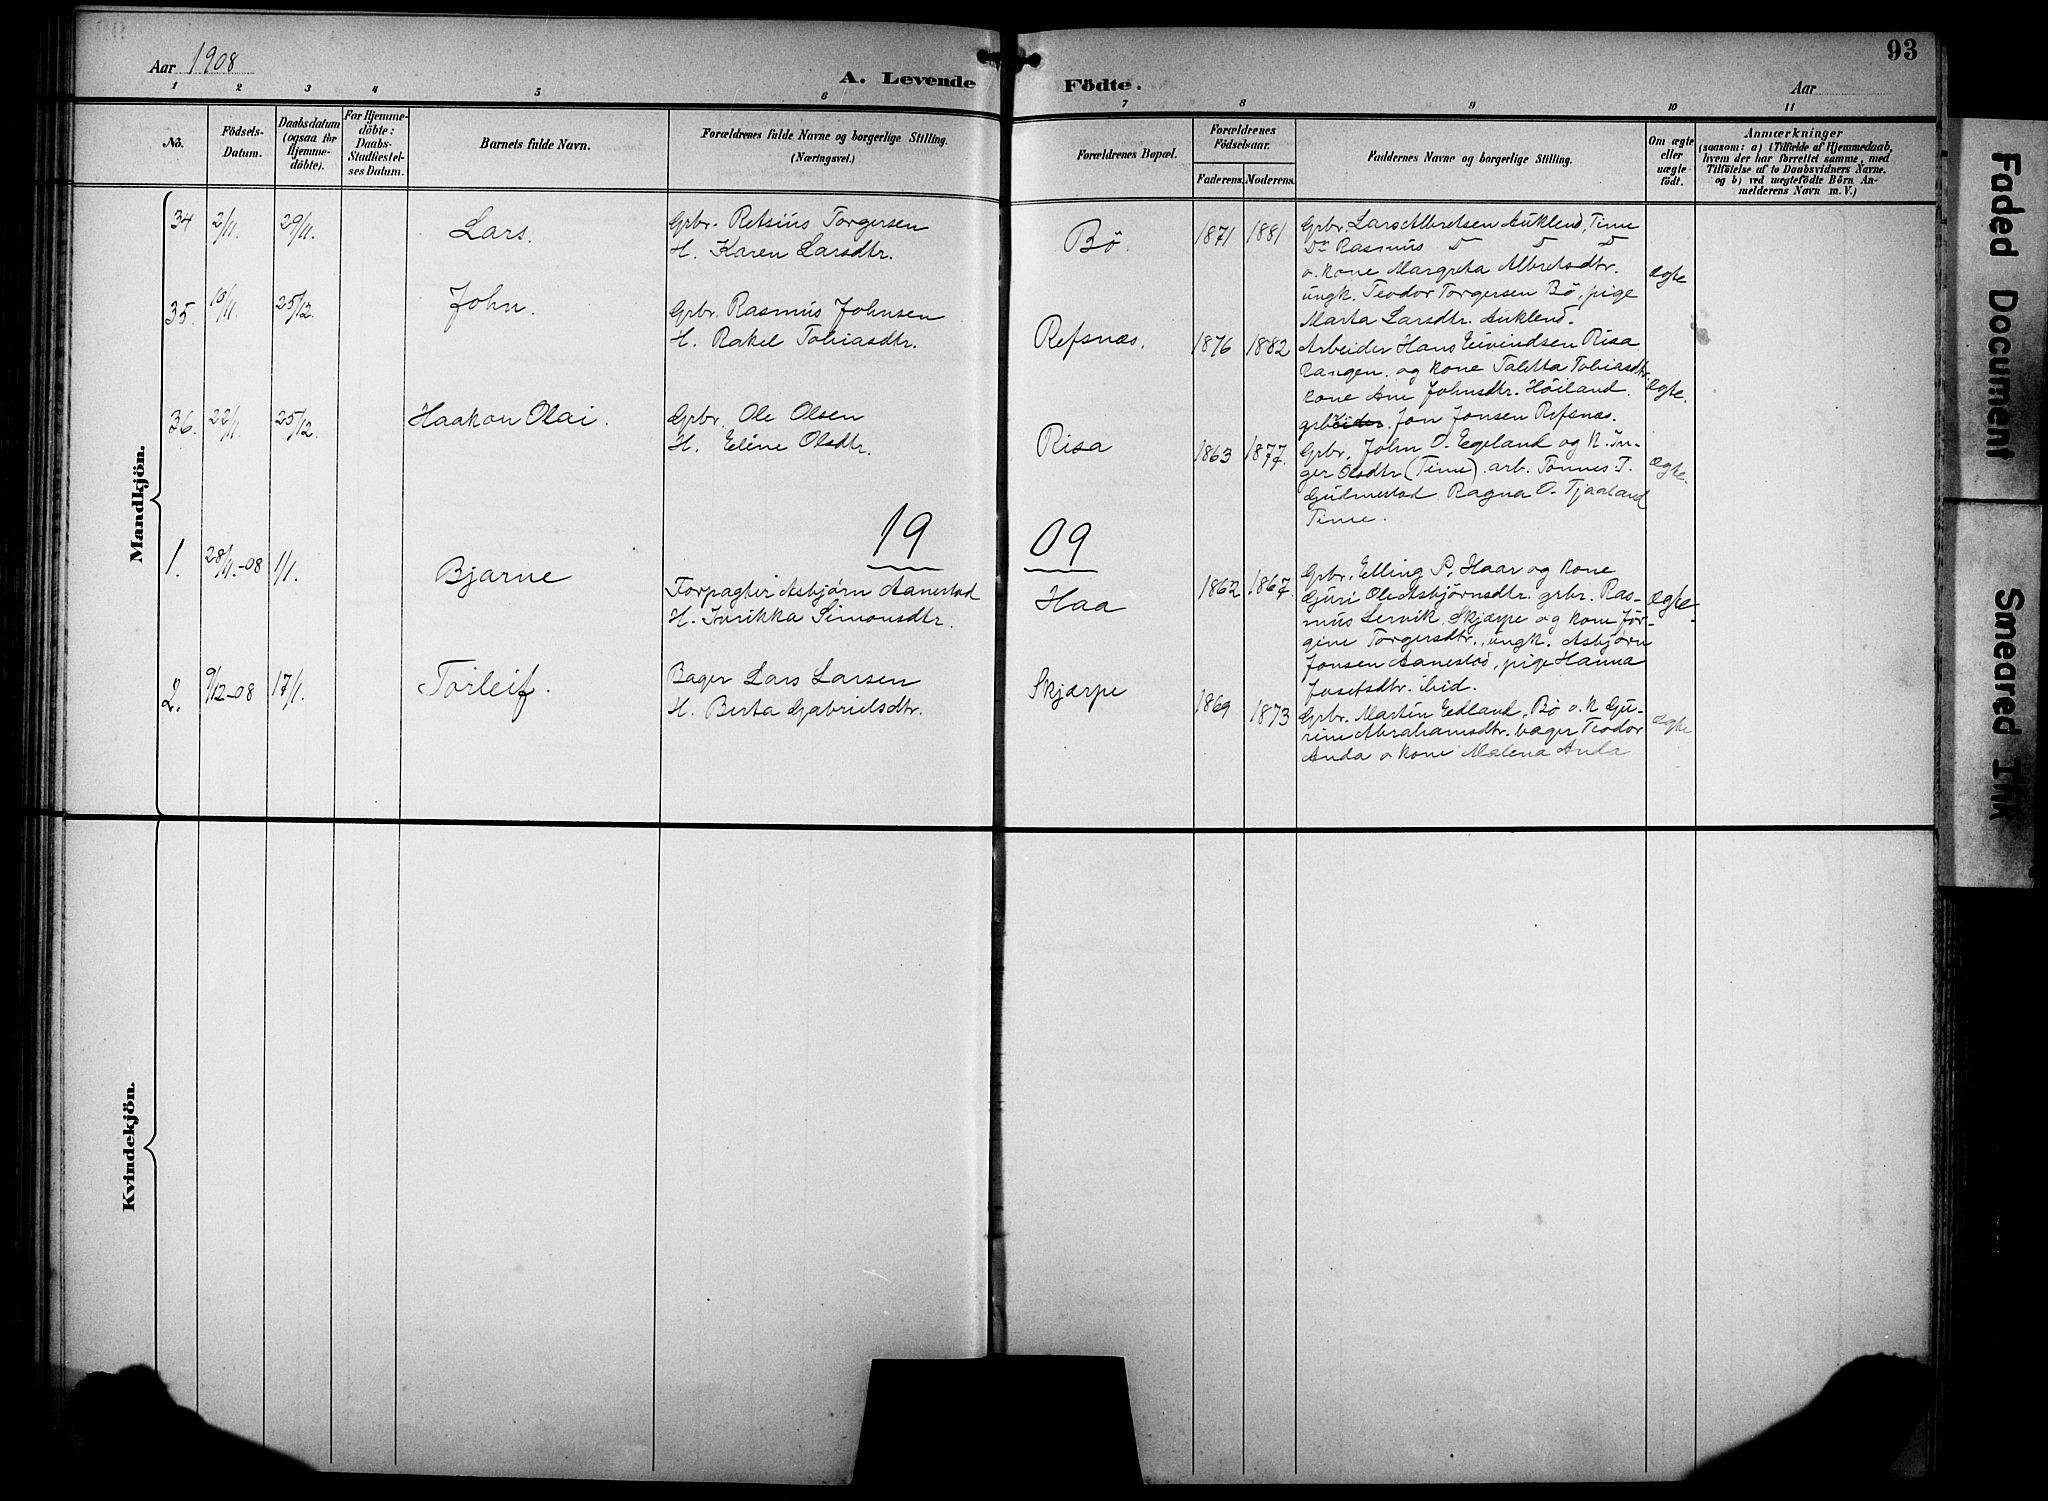 Aar 1908
A. Levende Födte.
Aar
93
1 2 3 4 5 6 7 8 9 10 11
No.
Födsels-
Datum.
Daabsdatum
(ogsaa for
Hjemme-
döbte).
For Hjemme-
döbte:
Daabs-
Stadfæstel-
ses Datum.
Barnets fulde Navn.
Forældrenes fulde Navne og borgerlige Stilling.
(Næringsvei.)
Forældrenes Bopæl.
Forældrenes
Födselsaar.
Faderens. Moderens.
Faddernes Navne og borgerlige Stilling.
Om ægte
eller
uægte
födt.
Anmærkninger
(saasom: a) i Tilfælde af Hjemmedaab,
hvem der har forrettet samme, med
Tilföielse af to Daabsvidners Navne.
og b) ved uægtefödte Börn An-
melderens Navn m. V.)
Mandkjön.
34 2/11. 29/11. Lars.
Grbr. Retsius Torgersen
H. Karen Larsdtr.
Bö. 1871 1881
Grbr. Lars Albretsen Auklend, Time
Do Rasmus
o. kone Margreta Albretsdtr.
ungk. Teodor Torgersen Bö, pige
Marta Larsdtr. Auklend.
ægte
35. 10/11. 25/12. John.
Grbr. Rasmus Johnsen
H. Rakel Tobiasdtr.
Refsnæs. 1876 1882
Arbeider Hans Eivindsen Risa
Vangen. og kone Taletta Tobiasdtr.
kone Ane Johnsdtr. Höiland.
Jon Jonsen Refsnæs.
ægte.
36. 22/11. 25/12. Haakon Olai.
Grbr. Ole Olsen
H. Eline Olsdtr.
Risa 1863 1877.
Grbr. John O. Egeland og K. In-
ger Olsdtr (Time). arb. Tönnes T.
Gudmestad Ragna O. Tjaaland
Time.
ægte.
1909
1. 28/11.-08 1/1. Bjarne
Forpagter Asbjörn Aanestad
H. Inrikka Simonsdtr.
Haa 1862 1867.
Grbr. Elling P. Haar og kone
Guri Ole Asbjörnsdtr. grbr. Ras-
mus Lervik, Skjærpe og kone Jör-
gine Torgersdtr., ungk. Asbjörn
Jonsen Aanestad, pige Hanna
Josefsdtr. ibid.
Ægte.
2. 9/12-08 17/1. Torleif.
Bager Lars Larsen
H. Berta Gabrielsdtr.
Skjærpe 1869 1873
Grbr. Martin Edland, Bö o. k Gu-
rine Abrahamsdtr. bager Teodor
Anda o kone Malena Anda
ægte
Kvindekjön.
Faded Document
Smeared Ink